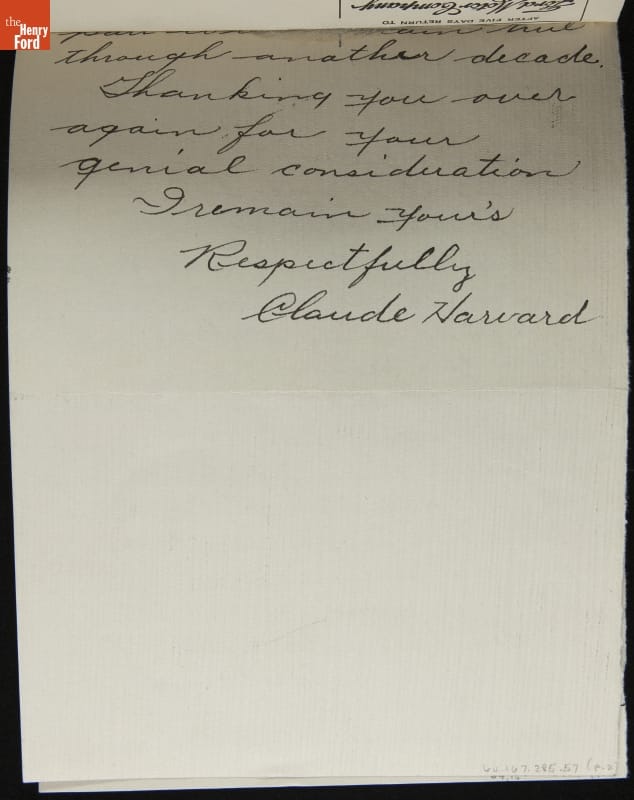 the
Henry
Ford
AFTER FIVE DAYS RETURN TO
Ford Motor Company
through another decade.
Thanking you over
again for your
genial consideration
I remain your's
Respectfully
Claude Harvard
64.167.285.57 (p.2)